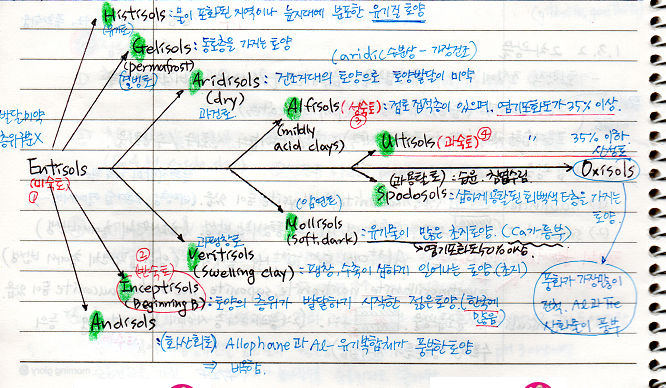 Histisols : 물이 포화된 지역이나 늪지대에 분포한 유기질 토양
(유기토)
Gelisols : 동토층을 가지는 토양
(permafrost) (aridic(수분상 - 가장건조)
(결빙토) Aridisols : 건조지대의 토양으로 토양발달이 미약
(dry)
과건토
발달미약
층위구분X
Alfisols (성숙토) : 점토집적층이 있으며, 염기포화도가 35% 이상.
③
(mildly acid clays)
Ultisols (과숙토) ④ " 35% 이하
산성토
Entisols
(미숙토)
①
Oxisols
(과용탈토) : 습윤 침엽수림
Spodosols : 심하게 용탈된 회백색 E층을 가지는
토양
(암연토)
Mollisols : 유기물이 많은 초지토양. (Ca가 풍부)
(soft, dark) → 염기포화도 50% 이상
과팽창토
Vertisols
(Swelling clay) : 팽창, 수축이 심하게 일어나는 토양 (초지)
②
(반숙토)
Inceptisols
(Beginning B) : 토양의 층위가 발달하기 시작한 젊은토양 (한국에
많음)
풍화가 가장많이
진척. Al과 Fe
산화물이 풍부
Andisols
: (화산회토) Allophane과 Al-유기복합체가 풍부한토양
⇒